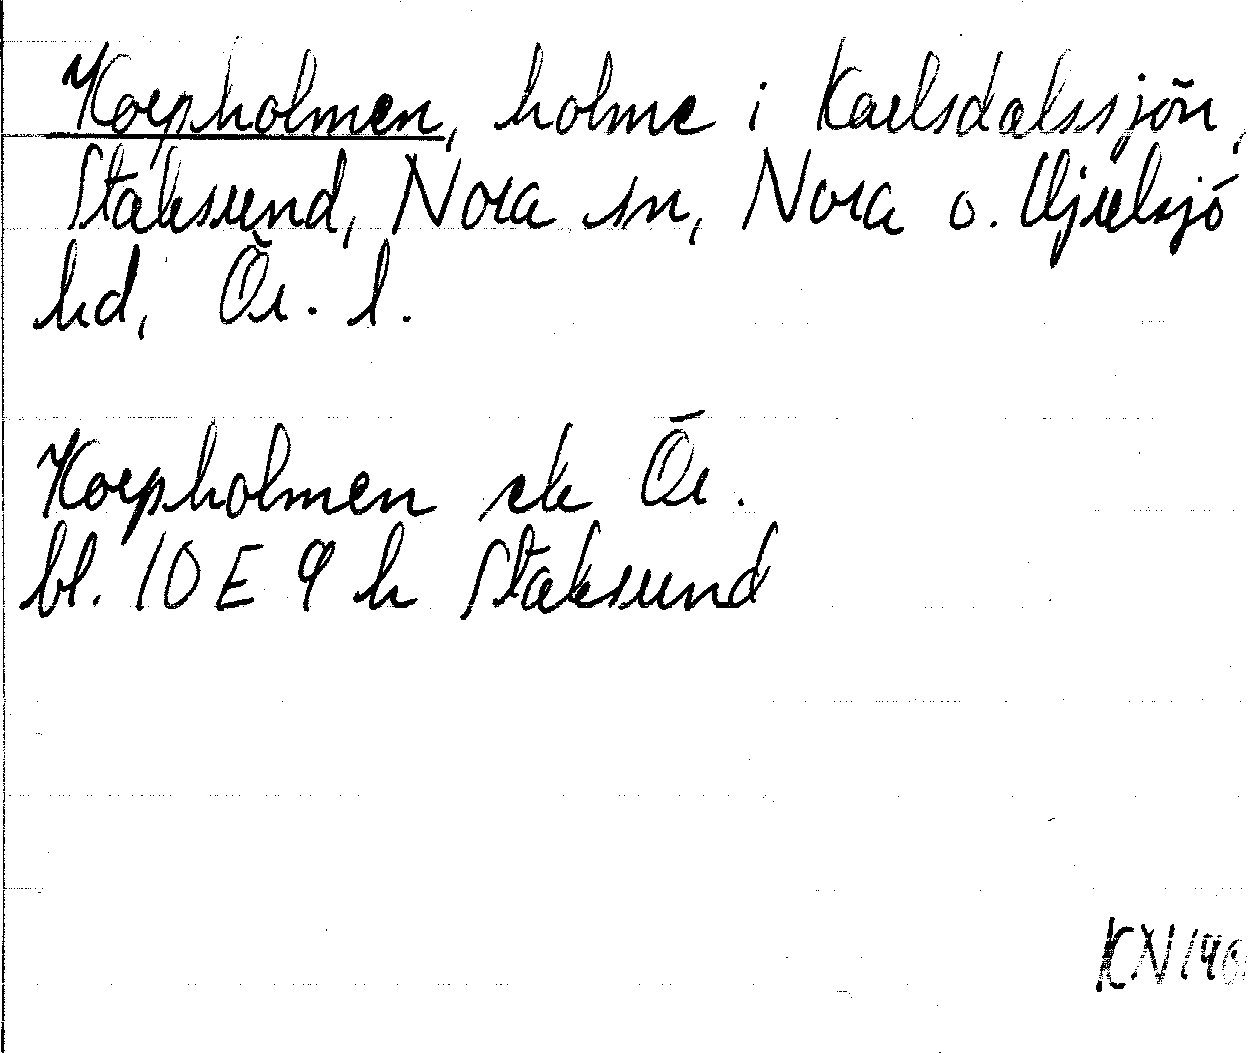 Korpholmen, holme i Karlsdalssjön,
Staksund, Nora sn, Nora o. Hjulsjö
hd, Ör. l.
Korpholmen ek Ör.
bl. 10 E 9 h Staksund